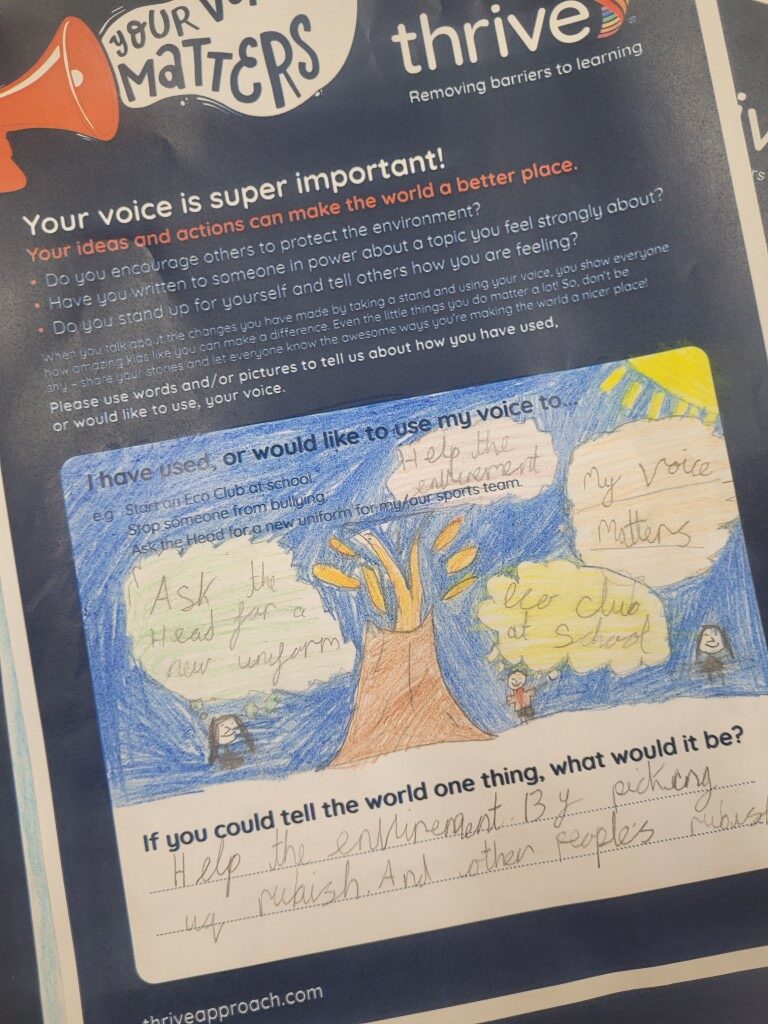 YOUR VO
MATTERS
thrive
Removing barriers to learning
Your voice is super important!
Your ideas and actions can make the world a better place.
• Do you encourage others to protect the environment?
• Have you written to someone in power about a topic you feel strongly about?
• Do you stand up for yourself and tell others how you are feeling?
When you talk about the changes you have made by taking a stand and using your voice, you show everyone
how amazing kids like you can make a difference. Even the little things you do matter a lot! So, don't be
shy - share your stories and let everyone know the awesome ways you're making the world a nicer place!
Please use words and/or pictures to tell us about how you have used,
or would like to use, your voice.
I have used, or would like to use my voice to...
e.g Start an Eco Club at school.
Stop someone from bullying.
Ask the Head for a new uniform for my/our sports team.
Help the
enlirement
My voice
Matters
Ask the
Head for a
new uniform
eco club
at School
If you could tell the world one thing, what would it be?
Help the enlirement. By picking
up rubish. And other people's rubish
thriveapproach.com